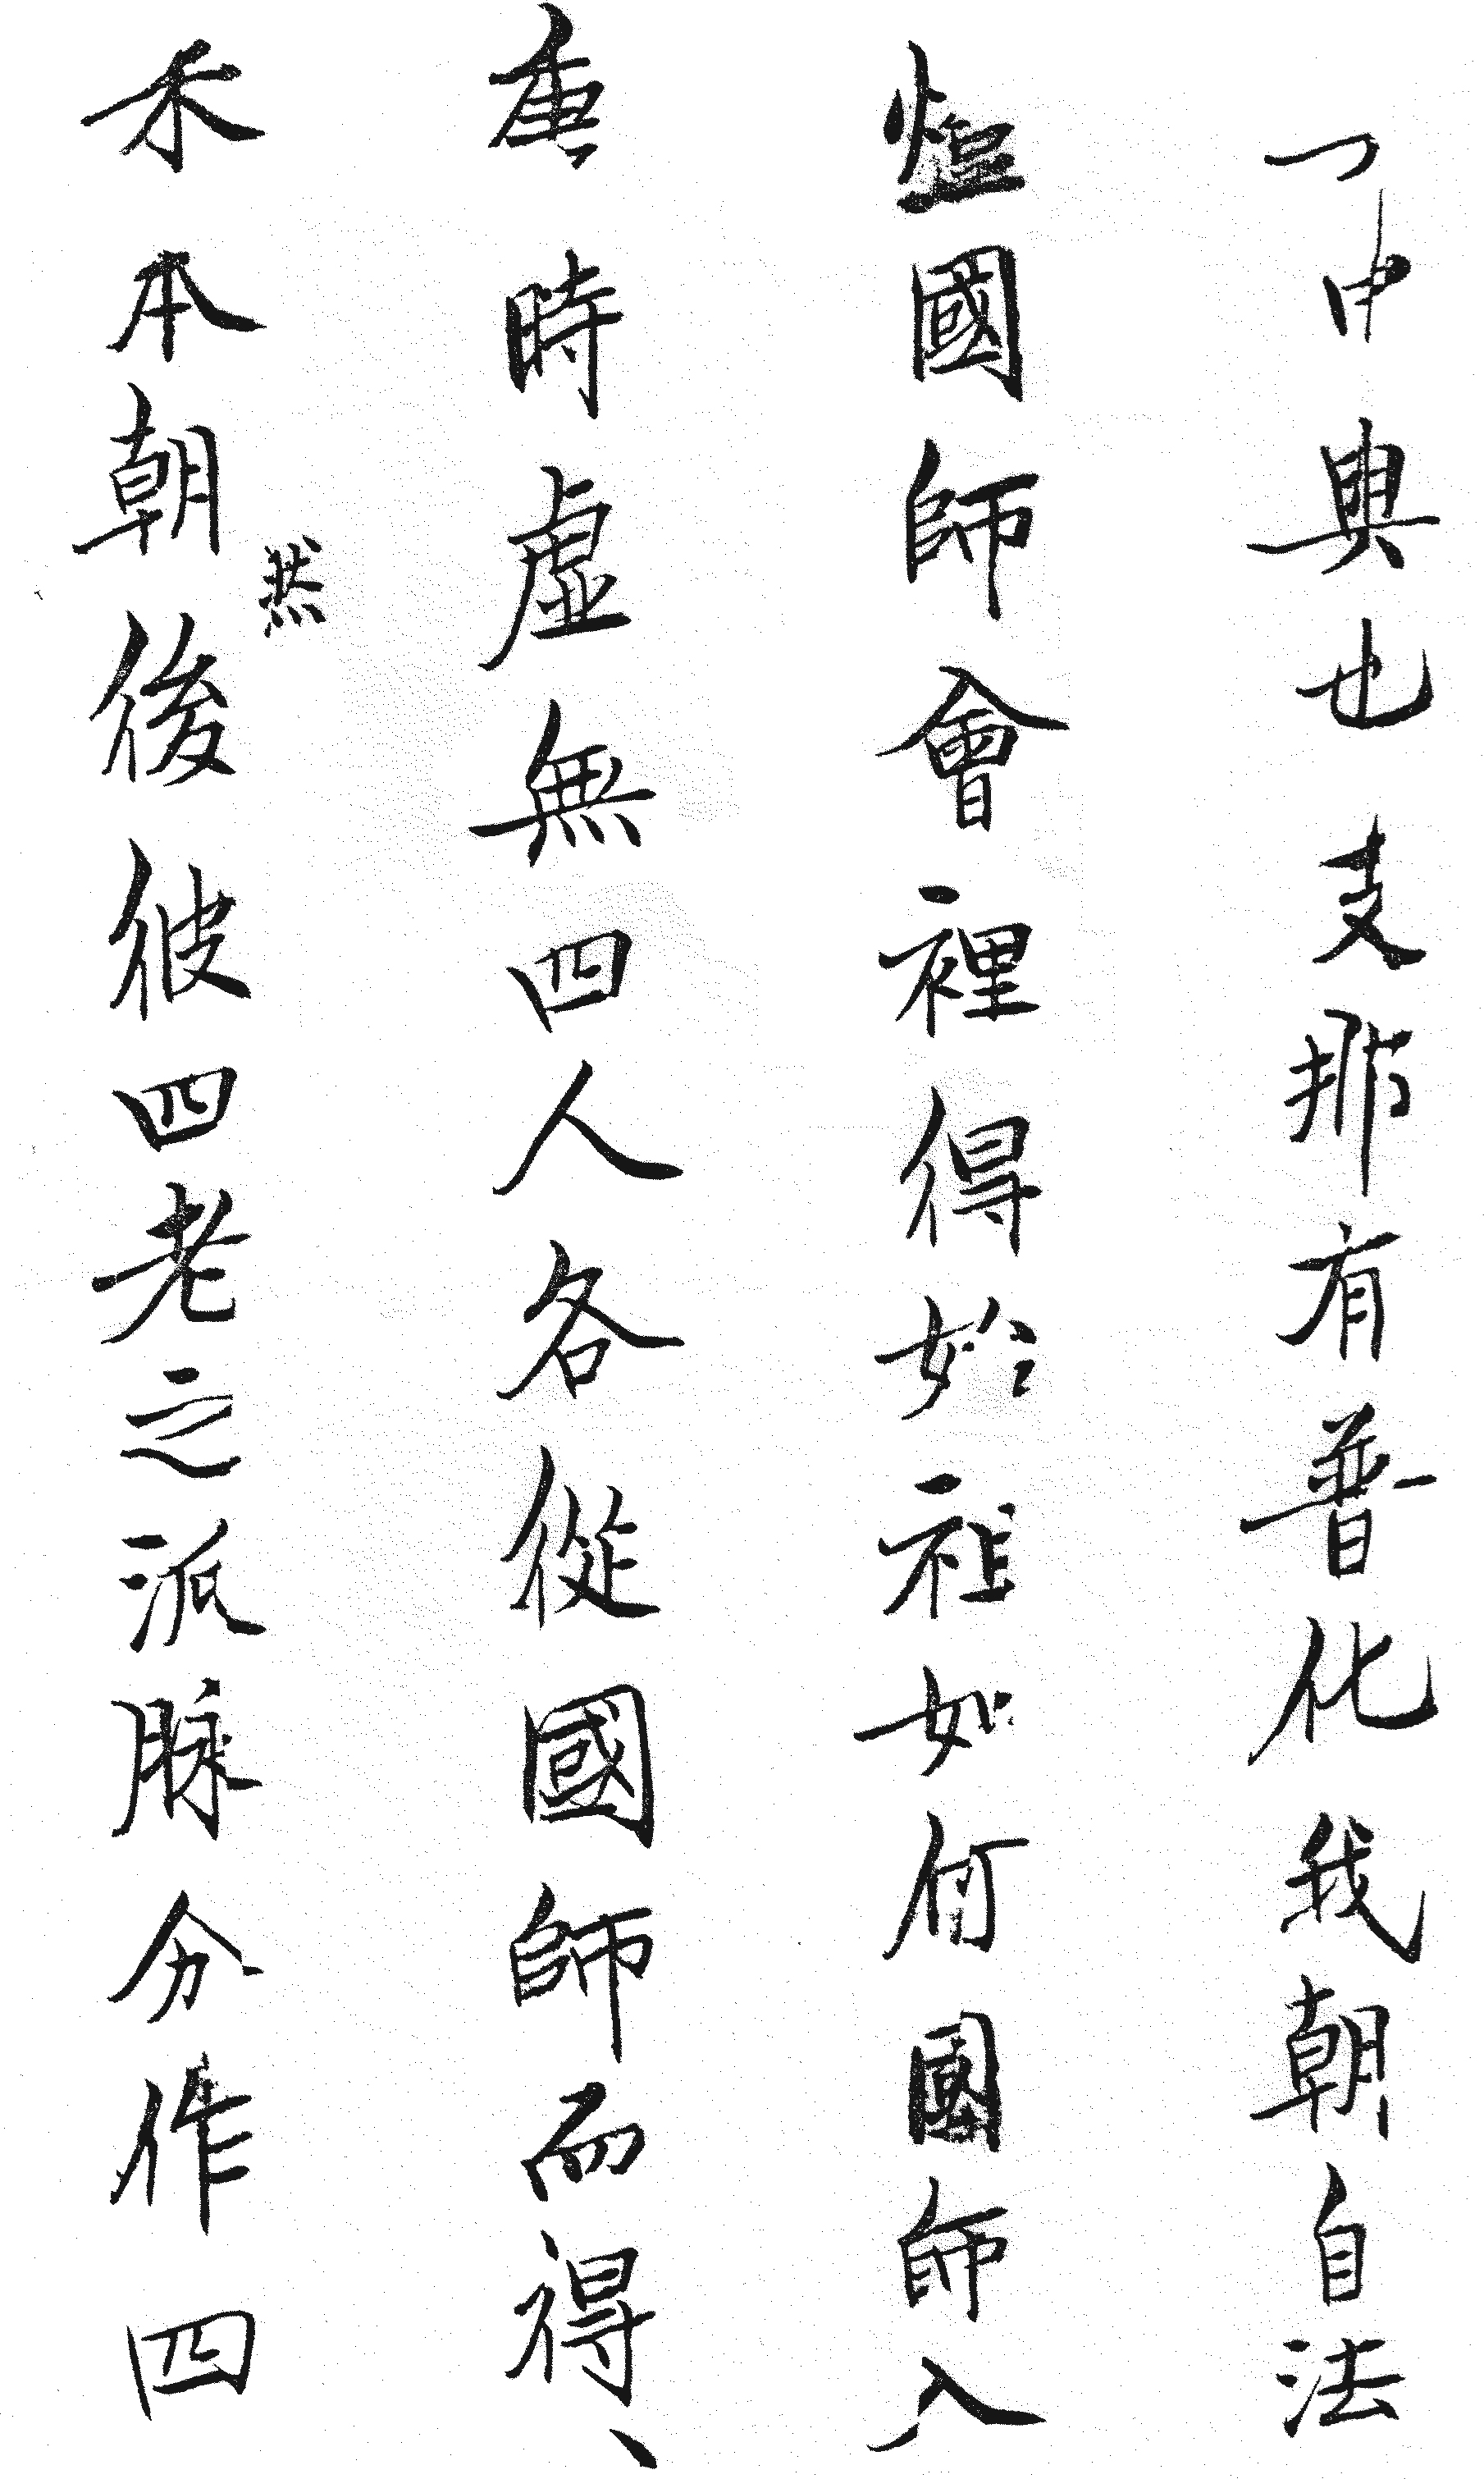 一中興也支那有普化我朝自法
燈國師會裡得始祖如何國師入
唐時虛無四人各從國師而得、
禾本朝然後彼四老之派脉分作四